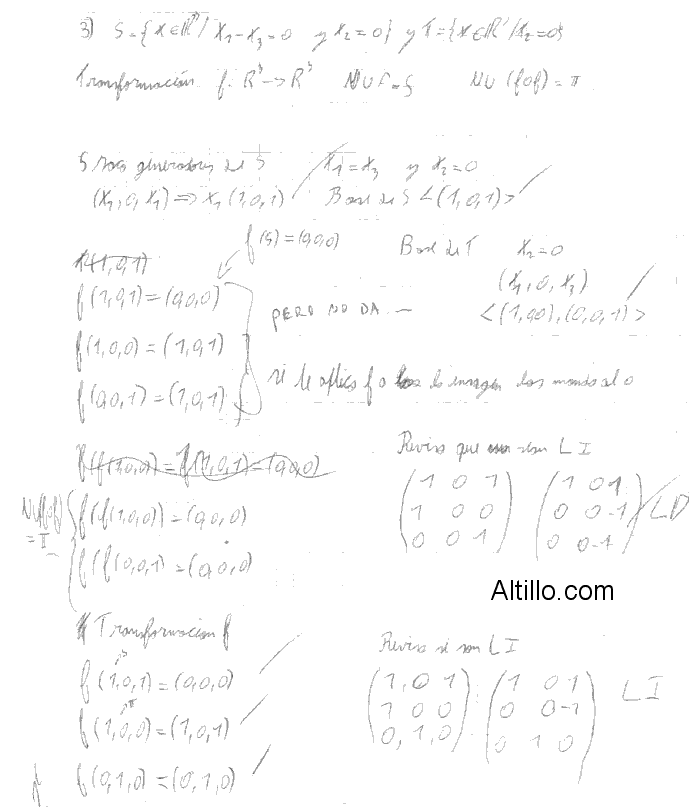 3) S={x∈ℝ³/ x₁-x₃=0 y x₂=0} y T={x∈ℝ³/x₂=0}
Transformación f: R³→R³ Nu f=S Nu (fof)=T
S generadores de S x₁=x₃ y x₂=0
(x₁,0,x₁)⇒x₁(1,0,1) Base de S <(1,0,1)>
f(S)=(0,0,0) Base de T x₂=0
(x₁,0,x₃)
<(1,0,0),(0,0,1)>
f(1,0,1)
f(1,0,1)=(0,0,0)
PERO NO DA
f(1,0,0)=(1,0,1)
si le aplico f a la imagen los mando al 0
f(0,0,1)=(1,0,1)
f(f(1,0,0))=f(1,0,1)=(0,0,0)
Reviso que sean LI
Nu(fof)=T
f(f(1,0,0))=(0,0,0)
f(f(0,0,1)=(0,0,0)
(1 0 1) (1 0 1)
(1 0 0) (0 0 -1) LD
(0 0 1) (0 0 -1)
Altillo.com
Transformación f
f(1,0,1)=(0,0,0)
f(1,0,0)=(1,0,1)
f(0,1,0)=(0,1,0)
Reviso si son LI
(1,0 1) (1 0 1)
(1 0 0) (0 0 -1) LI
(0,1,0) (0 1 0)